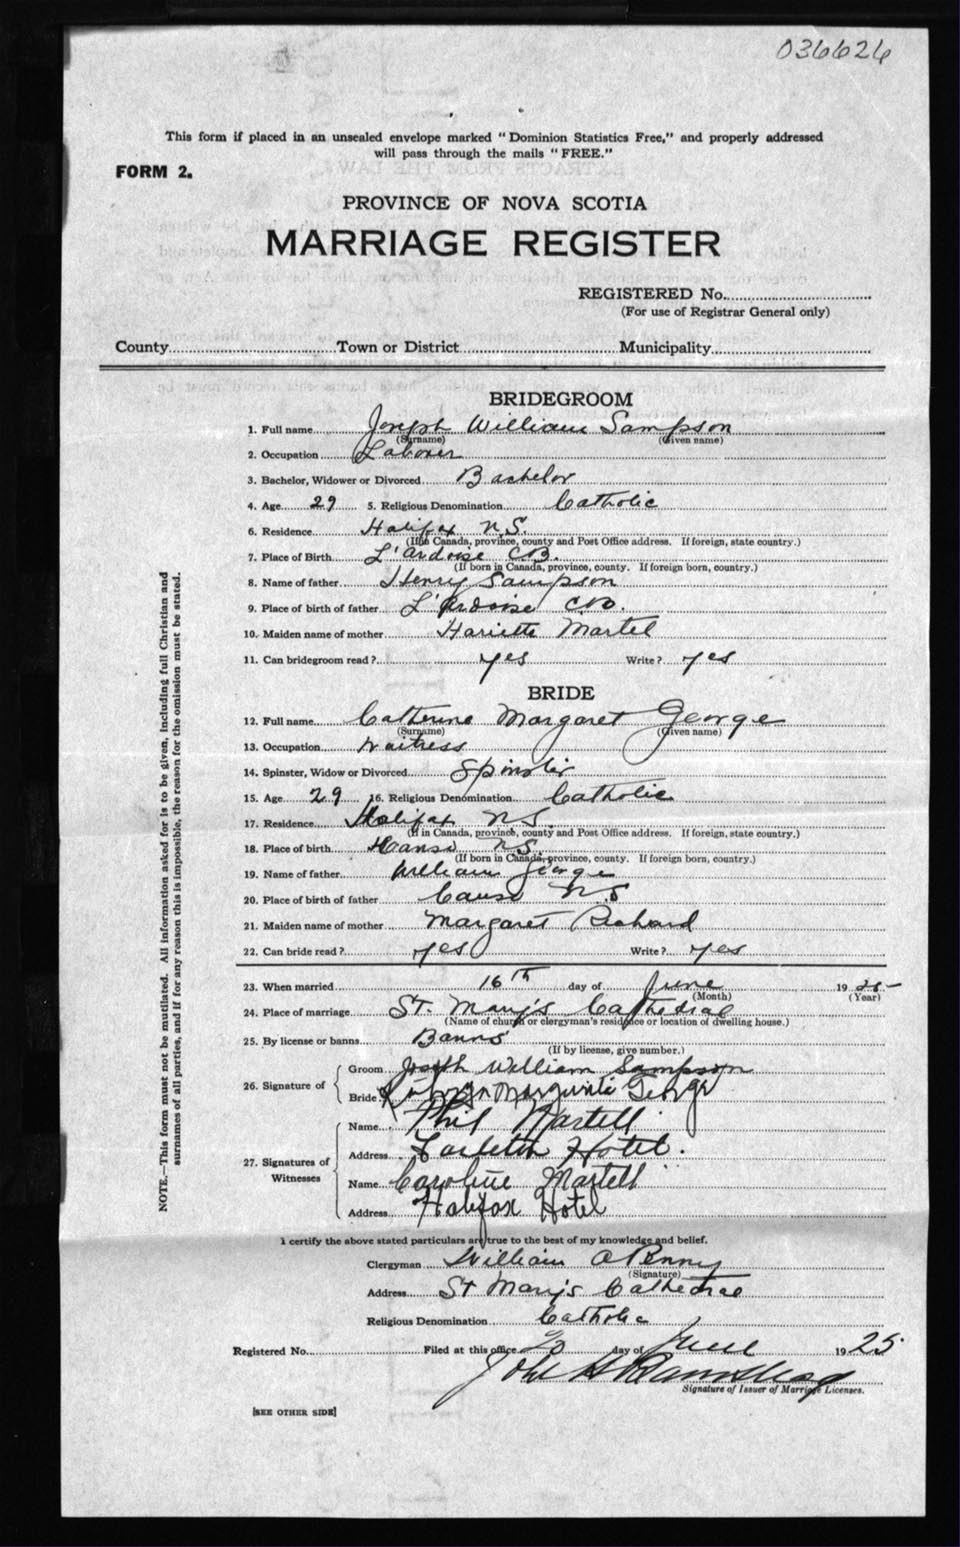 036626
This form if placed in an unsealed envelope marked "Dominion Statistics Free," and properly addressed
will pass through the mails "FREE."
FORM 2.
PROVINCE OF NOVA SCOTIA
MARRIAGE REGISTER
REGISTERED No.
(For use of Registrar General only)
County Town or District Municipality
BRIDEGROOM
1. Full name Joseph William Sampson
(Surname) (Given name)
2. Occupation Laborer
3. Bachelor, Widower or Divorced Bachelor
4. Age 29 5. Religious Denomination Catholic
6. Residence Halifax N.S.
(If in Canada, province, county and Post Office address. If foreign, state country.)
7. Place of Birth L'Ardoise C.B.
(If born in Canada, province, county. If foreign born, country.)
8. Name of father Henry Sampson
9. Place of birth of father L'Ardoise C.B.
10. Maiden name of mother Hariette Martel
11. Can bridegroom read? yes Write? yes
BRIDE
12. Full name Catherine Margaret George
(Surname) (Given name)
13. Occupation Waitress
14. Spinster, Widow or Divorced Spinster
15. Age 29 16. Religious Denomination Catholic
17. Residence Halifax N.S.
(If in Canada, province, county and Post Office address. If foreign, state country.)
18. Place of birth N.S.
(If born in Canada, province, county. If foreign born, country.)
19. Name of father William George
20. Place of birth of father Canso N.S
21. Maiden name of mother Margaret Richard
22. Can bride read? yes Write? yes
23. When married 16th day of June 1925
(Month) (Year)
24. Place of marriage St. Mary's Cathedral
(Name of church or clergyman's residence or location of dwelling house.)
25. By license or banns Banns
(If by license, give number.)
26. Signature of
Groom Joseph William Sampson
Bride George
27. Signatures of Witnesses
Name Phil Martell
Address Carleton Hotel.
Name Caroline Martell
Address Halifax Hotel
I certify the above stated particulars are true to the best of my knowledge and belief.
Clergyman William A Penny
(Signature)
Address St Mary's Cathedral
Religious Denomination Catholic
Registered No. Filed at this office day of June 1925
John
Signature of Issuer of Marriage Licenses.
[SEE OTHER SIDE]
NOTE.—This form must not be mutilated. All information asked for is to be given, including full Christian and
surnames of all parties, and if for any reason this is impossible, the reason for the omission must be stated.